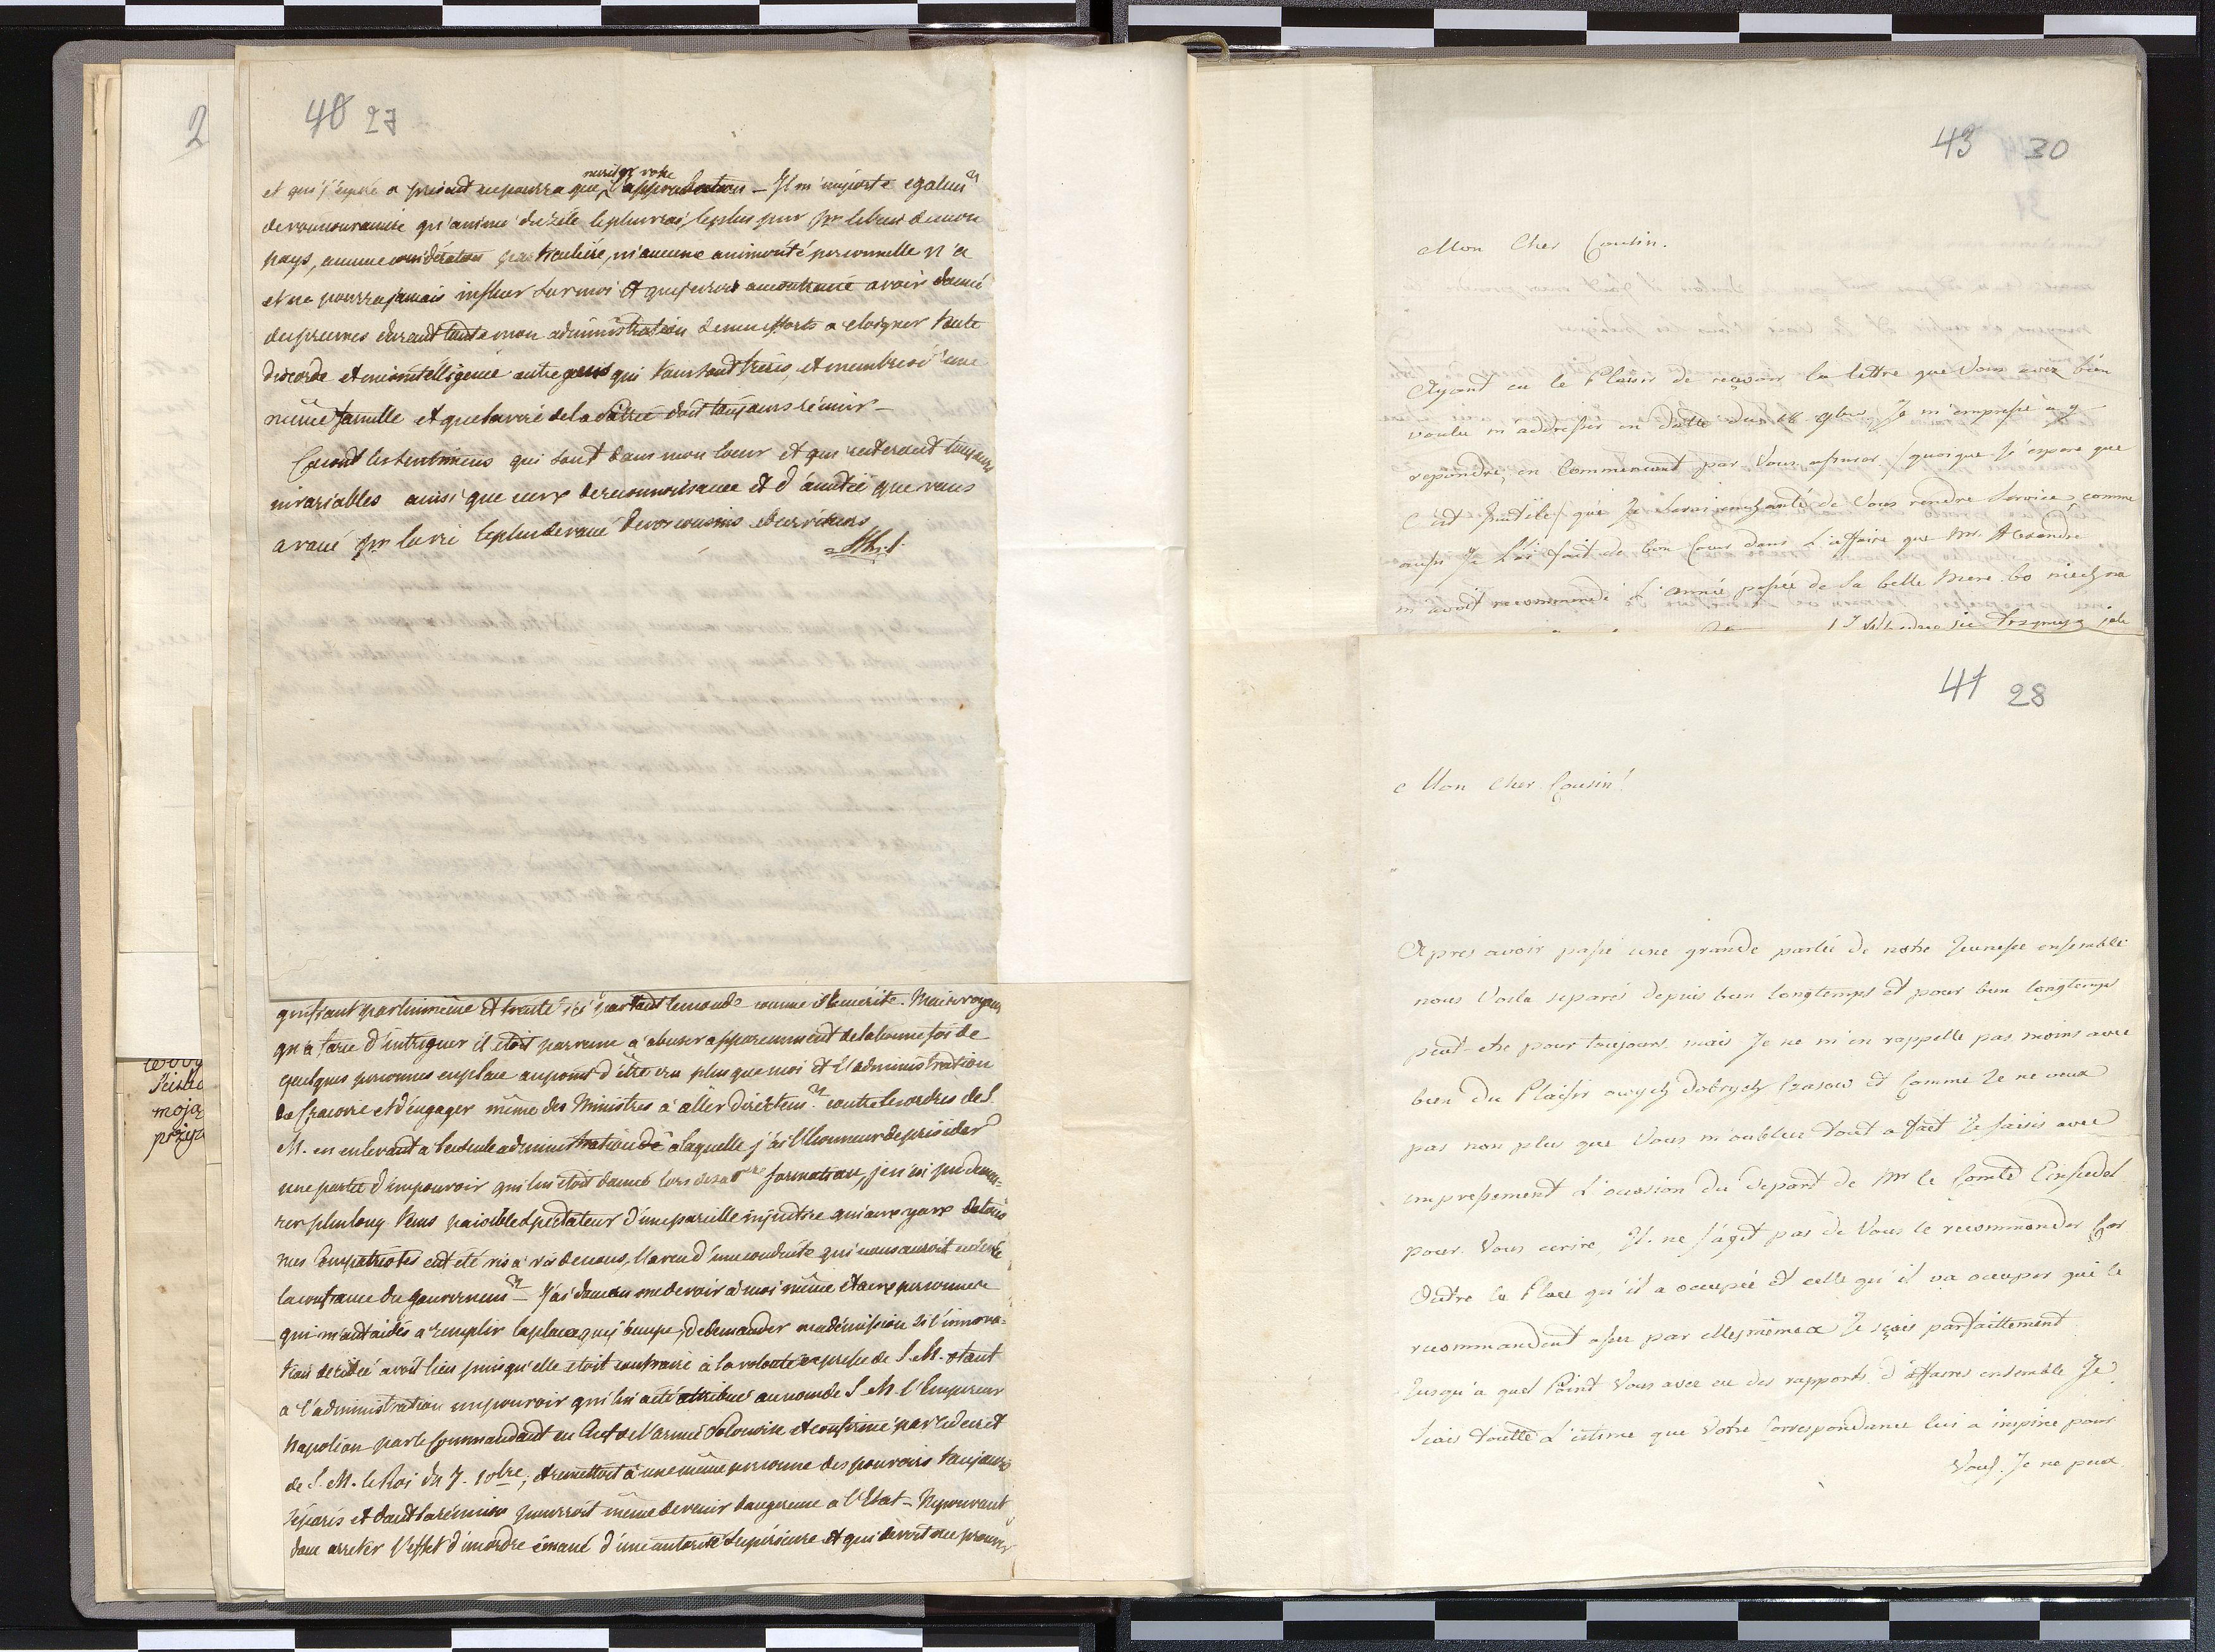 2
40 27
meriter votre
et que j'espére a présent ne pourra que l'approbation – Il m'importe egalem.t
de vous convaincre qu'animé du zéle le plus vrai, le plus pur pr le bien de mon
pays, aucune considération particuliére, ni aucune animosité personnelle n'a
et ne pourra jamais influer sur moi et que je crois au contraire avoir donné
des preuves durant toute mon administration de mes efforts a eloigner toute
discorde et mésintelligence entre gens qui tous sont freres, et membres d'une
même famille et que l'amour de la Patrie doit toujours réunir –
Ce sont les sentimens qui sont dans mon coeur et qui resteront toujours
invariables ainsi que ceux de reconnoissance et d'amitié que vous
a voué pr la vie le plus devoué de vos cousins et serviteurs
qui sont par lui même et traité ici par tout le monde comme il le mérite. Mais voyant
qu'a force d'intriguer il etoit parvenu a abuser apparemment de la bonne foi de
quelques personnes en place au point d'être cru plus que moi et l'administration
de Cracovie et d'engager même des Ministres a aller directem.t contre les ordres de S.
M. en enlevant a la seule administration de a laquelle j'ai l'Honneur de présider
une partie d'un pouvoir qui lui etoit donné lors de sa 1ere formation, je n'ai pu demeu-
rer plus long tems paisible spectateur d'une pareille injustice qui aux yeux de tous
mes Compatriotes eut eté vis à vis de nous, l'aveu d'une conduite qui nous auroit enlevé
la confiance du gouvernem.t – J'ai donc cru me devoir à moi même et aux personnes
qui m'ont aidés a remplir la place que j'occupe, de demander ma démission si l'innova-
tion décidée avoit lieu puisqu'elle etoit contraire à la volonté expresse de S. M. otant
a l'administration un pouvoir qui lui a été attribué au nom de S. M. l'Empereur
Napoléon par le Commandant en Chef de l'armée Polonoise et confirmé par le decret
de S. M. le Roi du 7. 10bre, et remettoit à une même personne des pouvoirs toujours
séparés et dont la réunion pourroit même devenir dangereuse a l'Etat – Ne pouvant
donc arreter l'effet d'un ordre émané d'une autorité supérieure et qui devoit me prouver
moja
43 30
31
Mon Cher Cousin.
Ayant eu le Plaisir de reçevoir la lettre que Vous avez bien
voulu m'addresser en datte du 18 9bre Je m'empresse a y
repondre, en Commencent par Vous assurer /quoique J'espere que
C'est Inutile/ que Je serai enchanté de Vous rendre Service comme
aussi Je l'ai fait de bon Coeur dans l'affaire que Mr. Alexandre
m'avoit recommendé l'année passée de Sa belle Mere bo niech na
41 28
Mon Cher Cousin!
Apres avoir passé une grande partie de notre Jeunesse ensemble
nous Voila separés depuis bien longtemps et pour bien longtemps
peut-etre pour toujours, mais Je ne m'en rappelle pas moins avec
bien du Plaisir owych dobrych Czasow et Comme Je ne veux
pas non plus que Vous m'oubliez tout a fait Je saisis avec
empressement L'occasion du depart de Mr le Comte Einsiedel
pour Vous ecrire, Il ne s'agit pas de Vous le recommander Car
Outre la Place qu'il a occupée et celle qu'il va occuper qui le
recommandent assez par elles mêmes Je sçais parfaittement
Jusqu'a quel Point Vous avez eu des rapports d'affaires ensemble Je
sçais toutte L'estime que Votre Correspondance lui a inspirée pour
Vous. Je ne peux